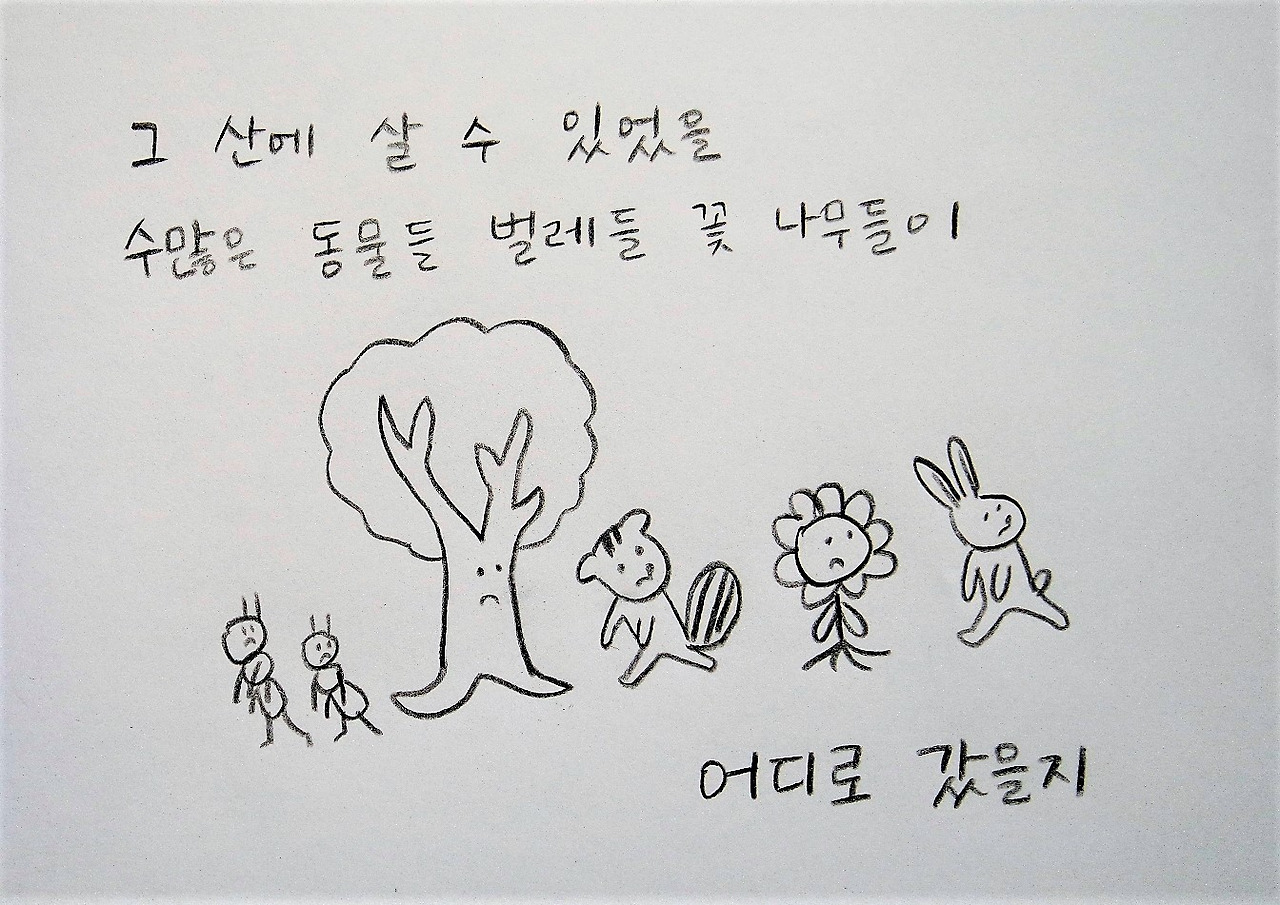 그 산에 살 수 있었을
수많은 동물들 벌레들 꽃 나무들이
어디로 갔을지